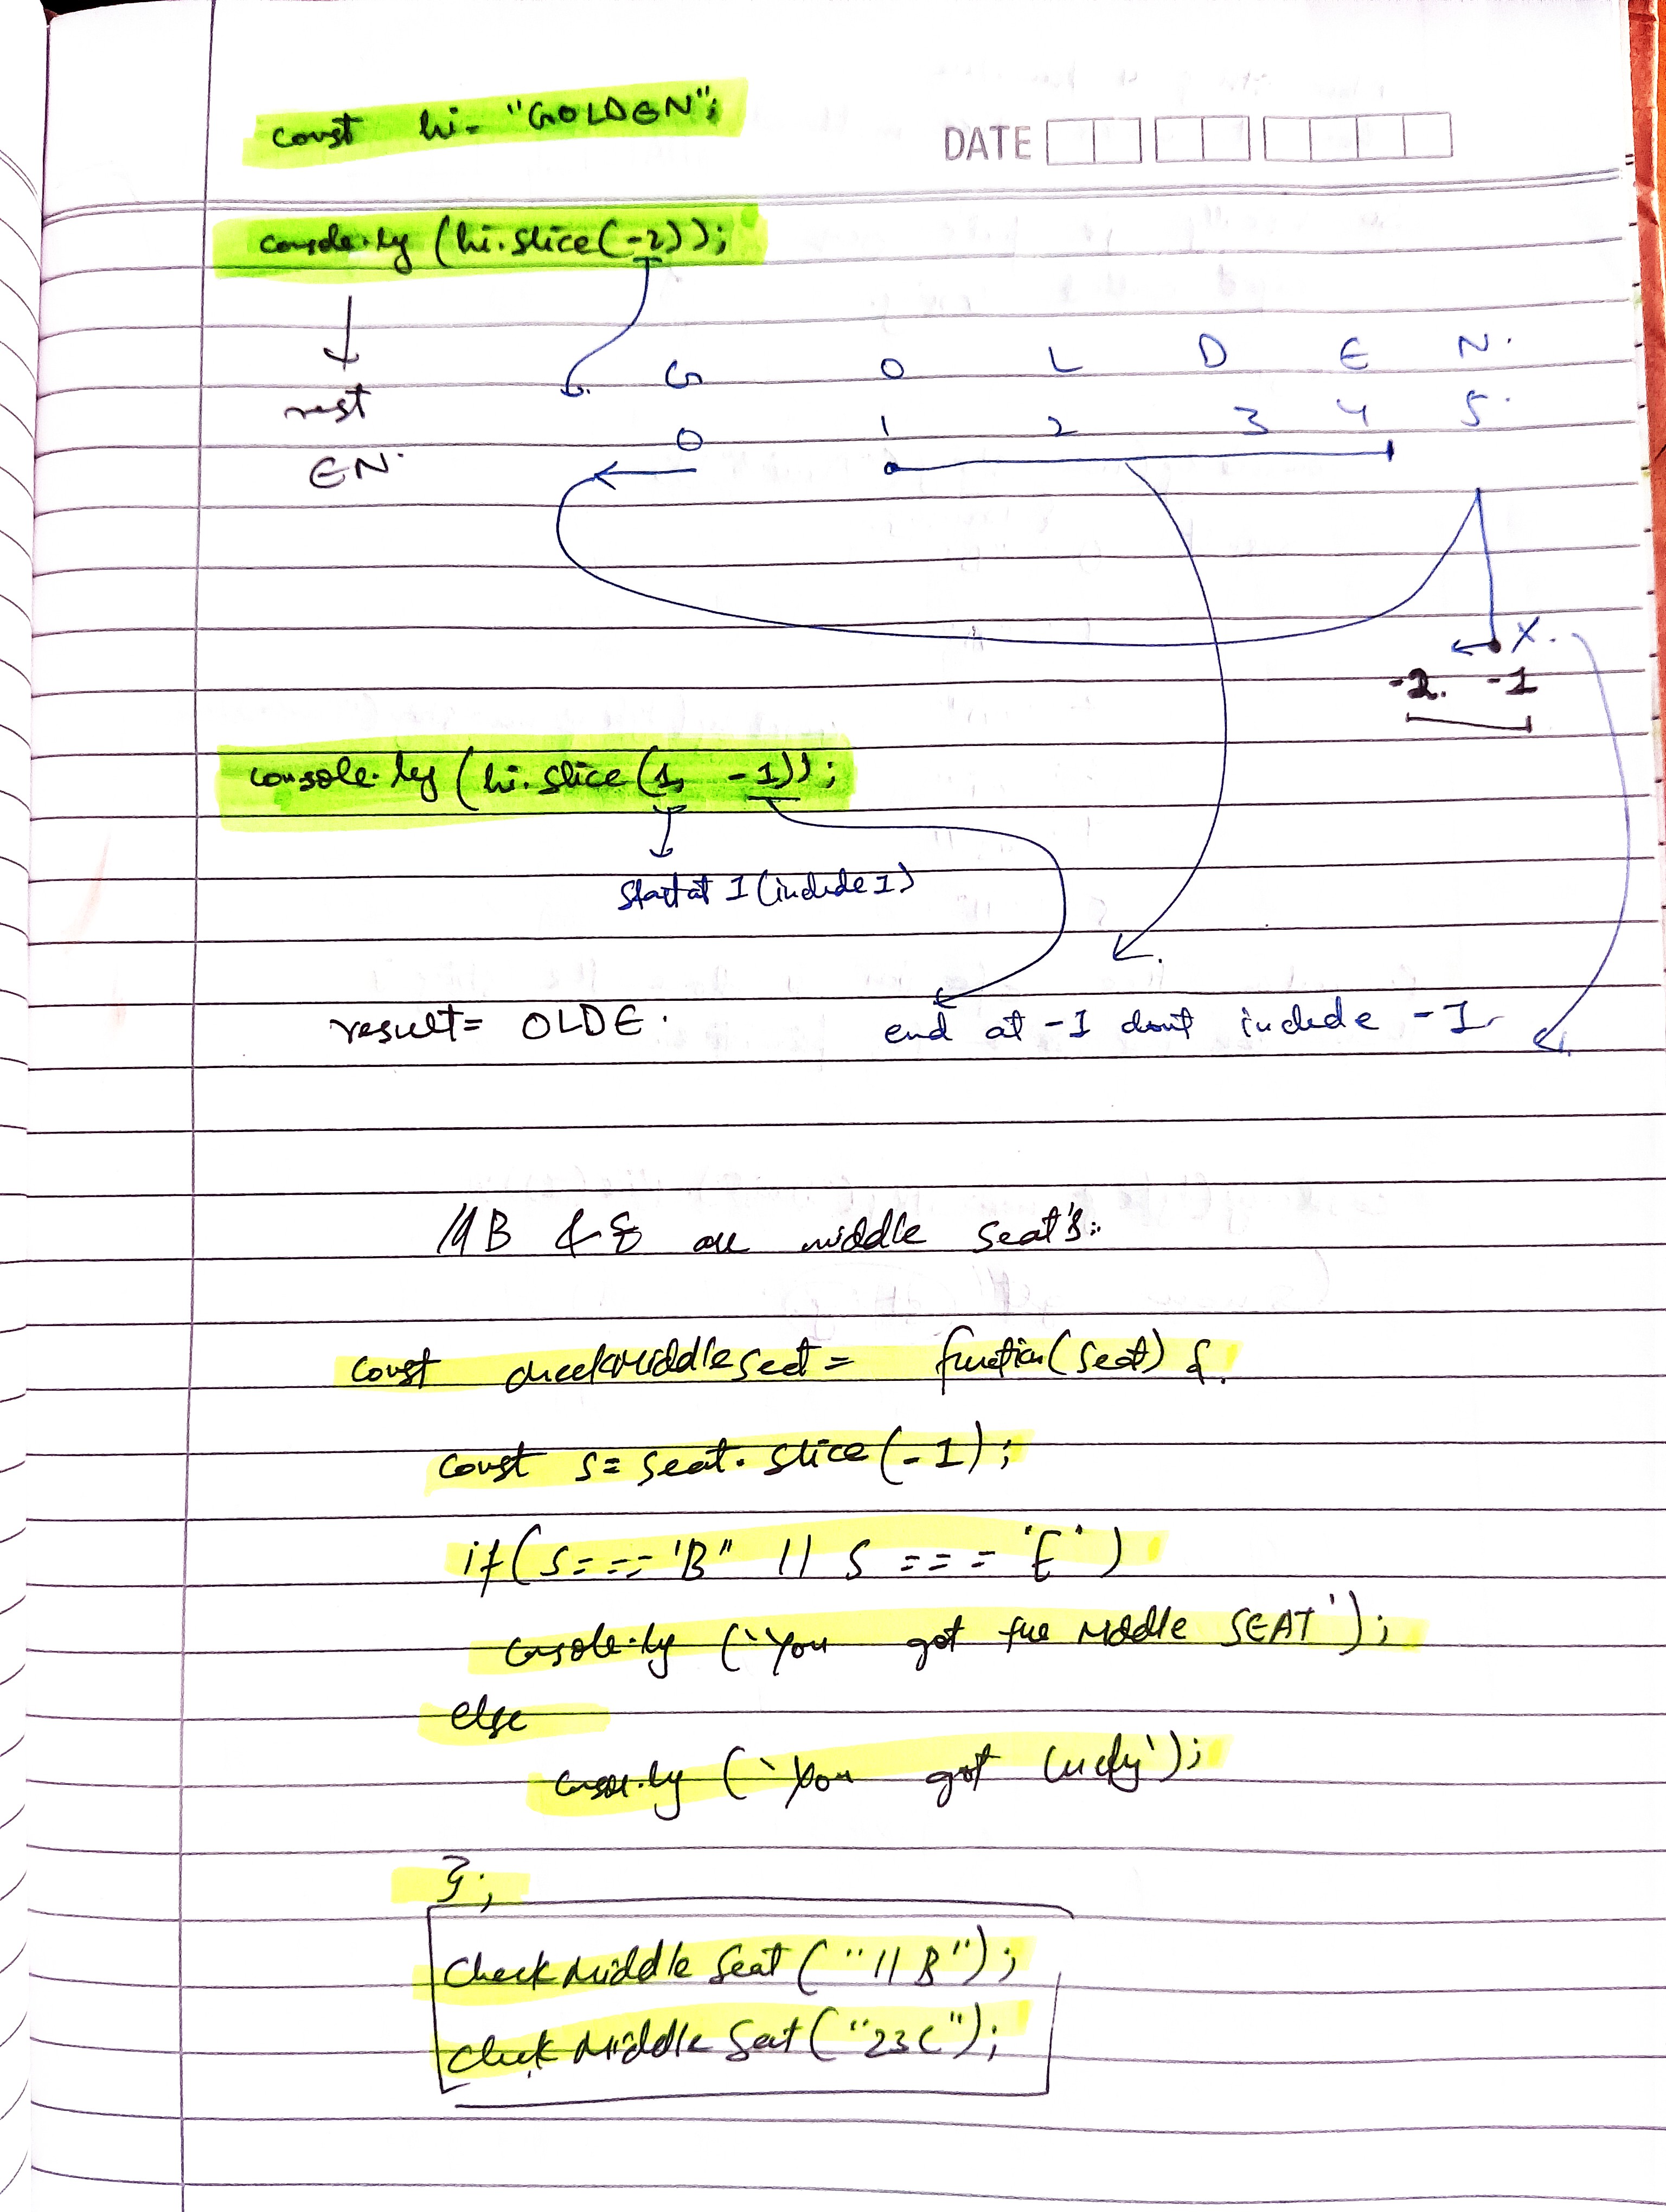 const hi = "GOLDEN";
DATE
console.log (hi.slice(-2));
G O L D E N.
rest
0 1 2 3 4 5.
EN.
X.
-2. -1
console.log (hi.slice (1, -1));
Start at 1 (include 1)
result = OLDE.
end at -1 dont include -1
// B & E are middle seat's:
const checkMiddleseat = function(seat) {
const s = seat.slice(-1);
if(s === 'B" || s === 'E')
console.log ('You got the Middle SEAT');
else
console.log ('You got lucky');
};
Check Middle Seat ("11B");
Check Middle Seat ("23C");